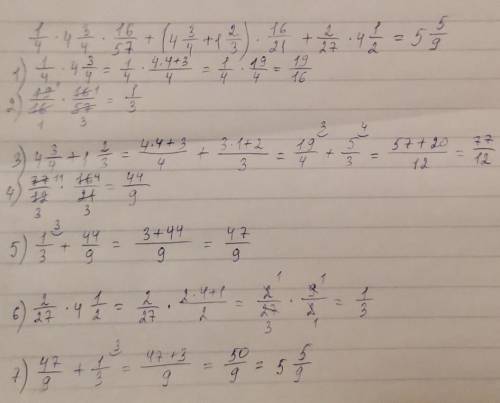 1/4 · 4 3/4 · 16/57 + (4 3/4 + 1 2/3) · 16/21 + 2/27 · 4 1/2 = 5 5/9
1) 1/4 · 4 3/4 = 1/4 · (4·4+3)/4 = 1/4 · 19/4 = 19/16
2) 19/16 · 16/57 = 1/3
3) 4 3/4 + 1 2/3 = (4·4+3)/4 + (3·1+2)/3 = 19/4 + 5/3 = (57+20)/12 = 77/12
4) 77/12 · 16/21 = 44/9
5) 1/3 + 44/9 = (3+44)/9 = 47/9
6) 2/27 · 4 1/2 = 2/27 · (2·4+1)/2 = 2/27 · 9/2 = 1/3
7) 47/9 + 1/3 = (47+3)/9 = 50/9 = 5 5/9